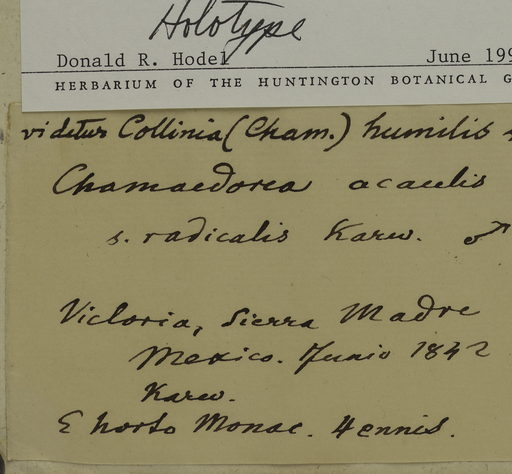 Holotype
Donald R. Hodel June 199
HERBARIUM OF THE HUNTINGTON BOTANICAL G
videtur Collinia (Cham.) humilis
Chamaedorea acaulis
s. radicalis Karw. ♂
Victoria, Sierra Madre
Mexico. Junio 1842
Karw.
E horto Monac. 4ennis.